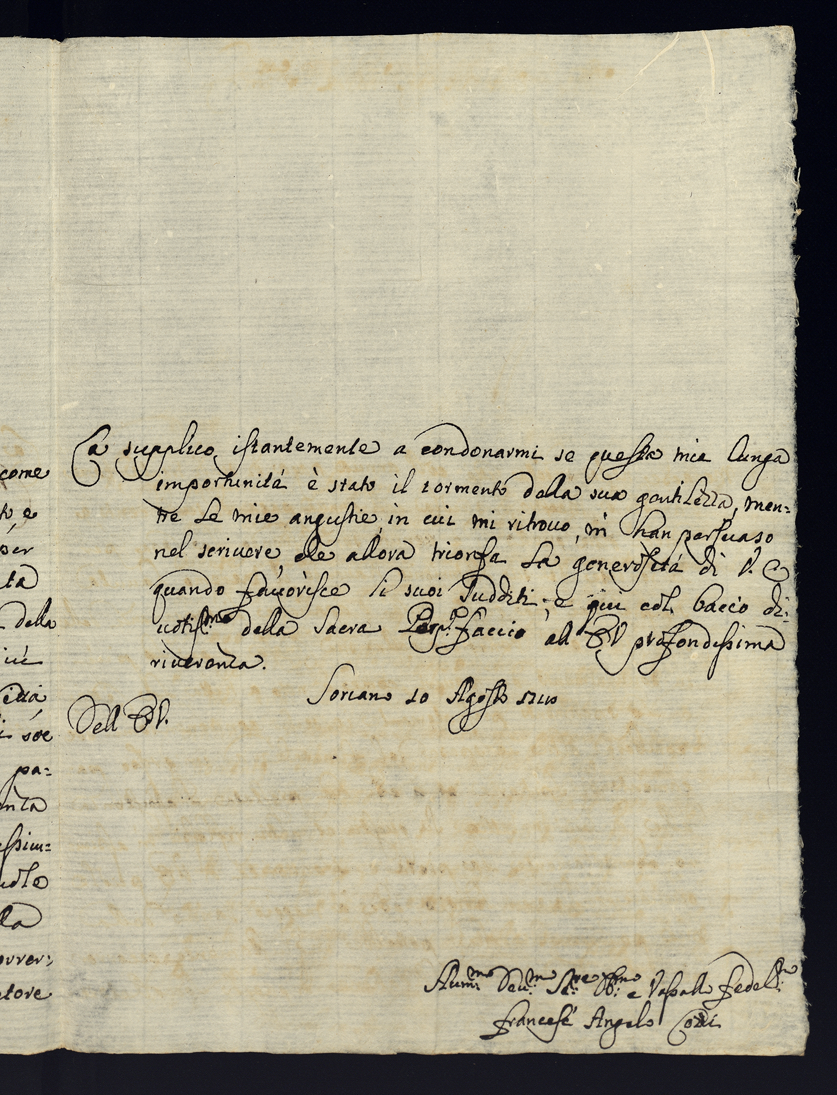 come
to e
per
ta
della
più
città
di soe
pa=
enta
essim=
uole
lla
orrer=
etore
La supplico istantemente a condonarmi se questa mia lunga
importunità è stato il tormento della sua gentilezza, men=
tre le mie angustie, in cui mi ritrovo, m' han persuaso
nel scrivere, che allora trionfa la generosità di V. E
quando favorisce li suoi sudditi; e qui col baccio di:
votis.mo della Sacra Porp.a faccio all' E V profondissima
riverenza.
Soriano 10 Agosto
Dell E V.
Hum.mo Dev.mo Ser.re Ob.mo e Vassallo fedel.mo
Francesc' Angelo